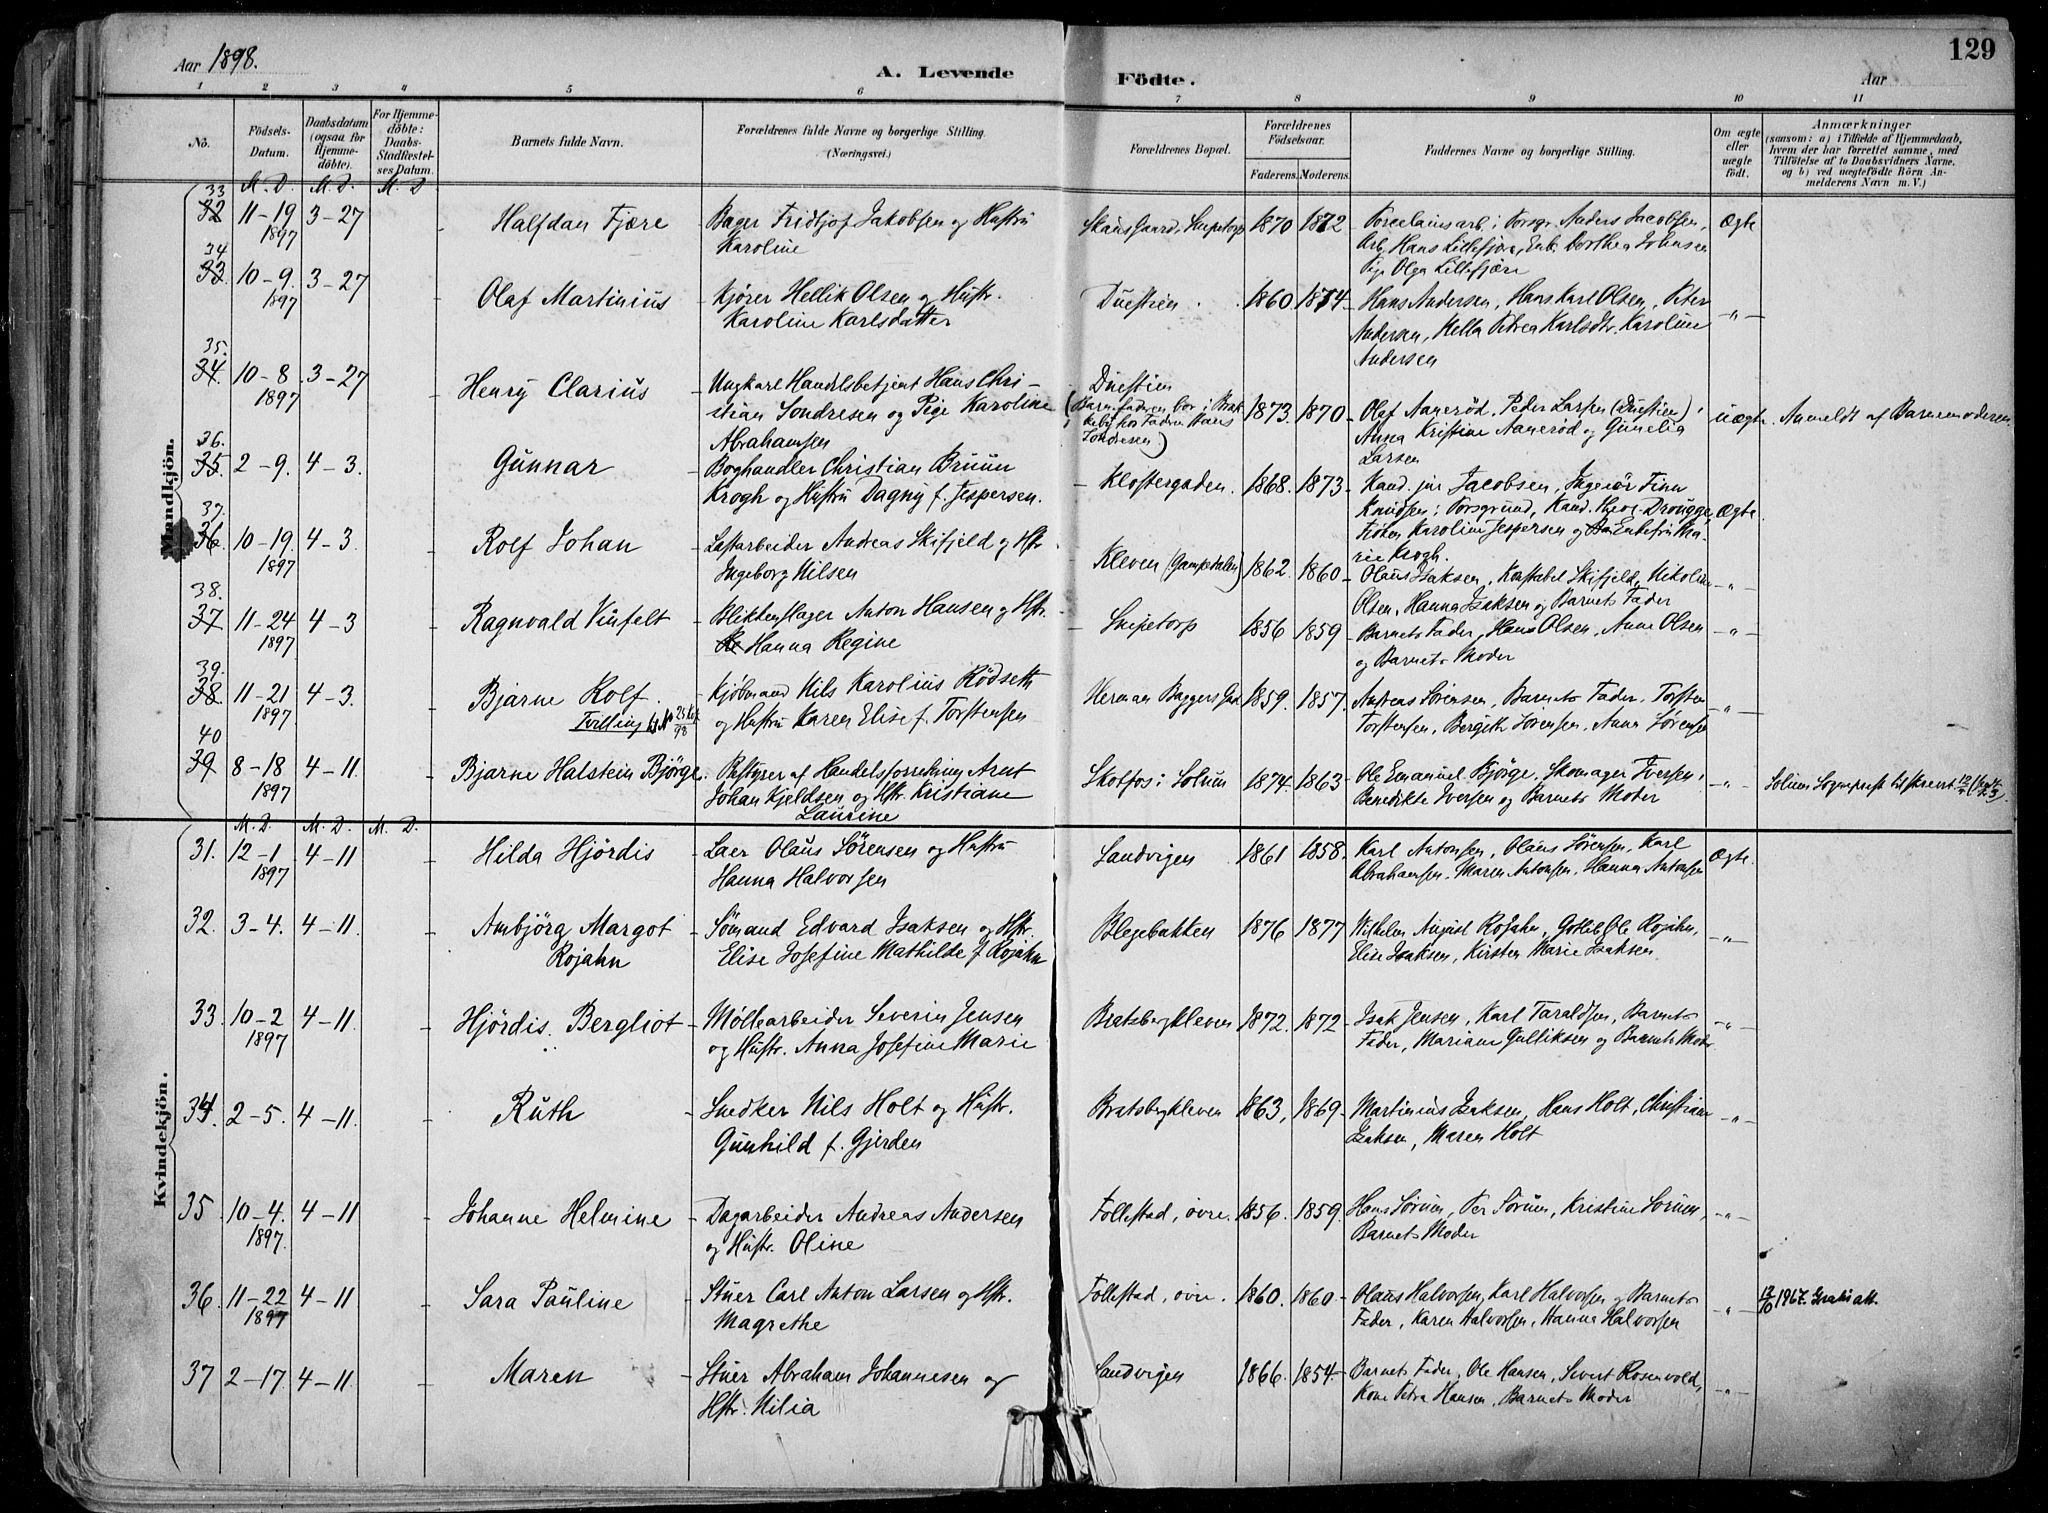 129
Aar 1898.
A. Levende Födte.
Aar
1 2 3 4 5 6 7 8 9 10 11
No.
Födsels-Datum.
Daabsdatum (ogsaa for Hjemme-döbte).
For Hjemme-döbte: Daabs-Stadfæstel-ses Datum.
Barnets fulde Navn.
Forældrenes fulde Navne og borgerlige Stilling. (Næringsvei.)
Forældrenes Bopæl.
Forældrenes Födselsaar. Faderens. Moderens.
Faddernes Navne og borgerlige Stilling.
Om ægte eller uægte födt.
Anmærkninger (saasom: a) i Tilfælde af Hjemmedaab, hvem der har forrettet samme, med Tilföielse af to Daabsvidners Navne, og b) ved uægtefödte Börn An-melderens Navn m. V.)
Mandkjön.
M. D. M. D. M. D
33 32 11-19 1897 3-27 - Halfdan Fjære - Bager Fridtjof Jakobsen og Hustru Karoline
Snipetorp 1870 1872 - Porcelainsarb. i Porsgr. Anders Jacobsen, Arb. Hans Lillefjære, Enk. Dorthea Johnsen Pige Olga Lillefjære
Ægte
34 33 10-9. 1897 3-27 - Olaf Martinius - Kjörer Hellik Olsen og Hustr. Karoline Karlsdatter
Duestien. 1860. 1874 - Hans Andersen, Hans Karl Olsen, Peter Andersen, Hella Petrea Karlsdtr. Karoline Andersen
-"-
35. 34. 10-8 1897 3-27 - Henry Clarius - Ungkarl Handelsbetjent Hans Chri-stian Sondresen og Pige Karoline Abrahamsen
Duestien (Barnefaderen bor i Brak keby hos Faderen Hans Sondresen)
1873. 1870 - Olaf Aanerød. Peder Larsen (Duestien), Anna Kristine Aanerød og Gunelia Larsen
uægte. Anmeldt af Barnemoderen
36. 35. 2-9. 4-3. - Gunnar - Boghandler Christian Bruun Krogh og Hustru Dagny f. Jespersen.
- Klostergaden. 1868. 1873 - Kand. jur Jacobsen, Ingeniör Finn Knudsen i Porsgrund, Kand. theol Drougge, Fröken Karoline Jespersen og Enkefru Ma-rie Krogh.
Ægte
37. 36. 10-19. 1897 4-3 - Rolf Johan - Lastarbeider Andreas Skifjeld og Hstr Ingeborg Nilsen
- Kleven (Gampedalen) 1862. 1860 - Olaus Isaksen, Konstabel Skifjeld, Nikoline Olsen, Hanna Isaksen og Barnets Fader
-"-
38. 37 11-24 1897 4-3 - Ragnvald Vinfelt - Blikkenslager Anton Hansen og Hstr. Hanna Regine
- Snipetorp 1856 1859 - Barnets Fader, Hans Olsen, Anne Olsen og Barnets Moder
-"-
39. 38. 11-21 1897 4-3. - Bjarne Rolf. Tvilling - Kjöbmand Nils Karolius Rödseth og Hustru Karen Elise f. Torstensen
Herman Baggers Gd 1859. 1857. Andreas Sörensen, Barnets Fader, Torsten Torstensen, Bergith Sörensen, Anna Sörensen
-"-
40 39 8-18 1897 4-11. - Bjarne Halstein Björge. Bestyrer af Handelsforretning Arnt Johan Kjeldsen og Hstr. Kristiane Laurine
Skotfos i Solum 1874 1863 - Ole Emanuel Björge, Skomager Iversen, Benedikte Iversen og Barnets Moder
-"- Solum Sogneprest tilskrevet
Kvindekjön.
M. D. M. D. M. D.
31. 12-1 1897 4-11 - Hilda Hjördis - Laer Olaus Sörensen og Hustru Hanna Halvorsen
Sandvigen 1861 1858. Karl Antonsen, Olaus Sörensen, Karl Abrahamsen. Maren Antonsen, Hanna Antonsen
Ægte.
32. 3-4. 4-11. - Ambjörg Margot Rojahn - Sömand Edvard Isaksen og Hstr. Elise Josefine Mathilde f Rojahn
Blegebakken 1876 1877 Wilhelm August Rojahn, Gotlib Ole Rojahn, Elise Isaksen, Kirsten Marie Isaksen.
-"-
33. 10-2 1897 4-11 - Hjördis. Bergliot - Møllearbeider Severin Jensen og Hustr. Anna Josefine Marie
Bratsbergkleven 1872. 1872 - Isak Jensen, Karl Taraldsen, Barnets Fader, Mariane Gulliksen og Barnets Moder
-"-
34 2-5. 4-11. - Ruth - Snedker Nils Holt og Hustr. Gunhild f. Gjerden
Bratsbergkleven 1863, 1869 - Martinius Isaksen, Hans Holt, Christian Isaksen, Maren Holt
-"-
35 10-4. 1897. 4-11 - Johanne Helmine - Dagarbeider Andreas Andersen og Hustr. Oline
Follestad, övre. 1856. 1859. Hans Sörum, Per Sörum, Kristine Sörum, Barnets Moder
-"-
36 11-22 1897 4-11 - Sara Pauline - Stuer Carl Anton Larsen og Hstr. Magrethe
Follestad, övre. 1860. 1860 - Olaus Halvorsen, Karl Halvorsen og Barnets Fader, Karen Halvorsen, Hanna Halvorsen
-"- 12/10 1967. Gratis att.
37 2-17. 4-11. - Maren - Stuer Abraham Johannesen og Hstr. Nilia
Sandvigen 1866. 1854 - Barnets Fader, Ole Hansen, Sivert Rosenvold, Kone Petra Hansen, Barnets Moder
-"-